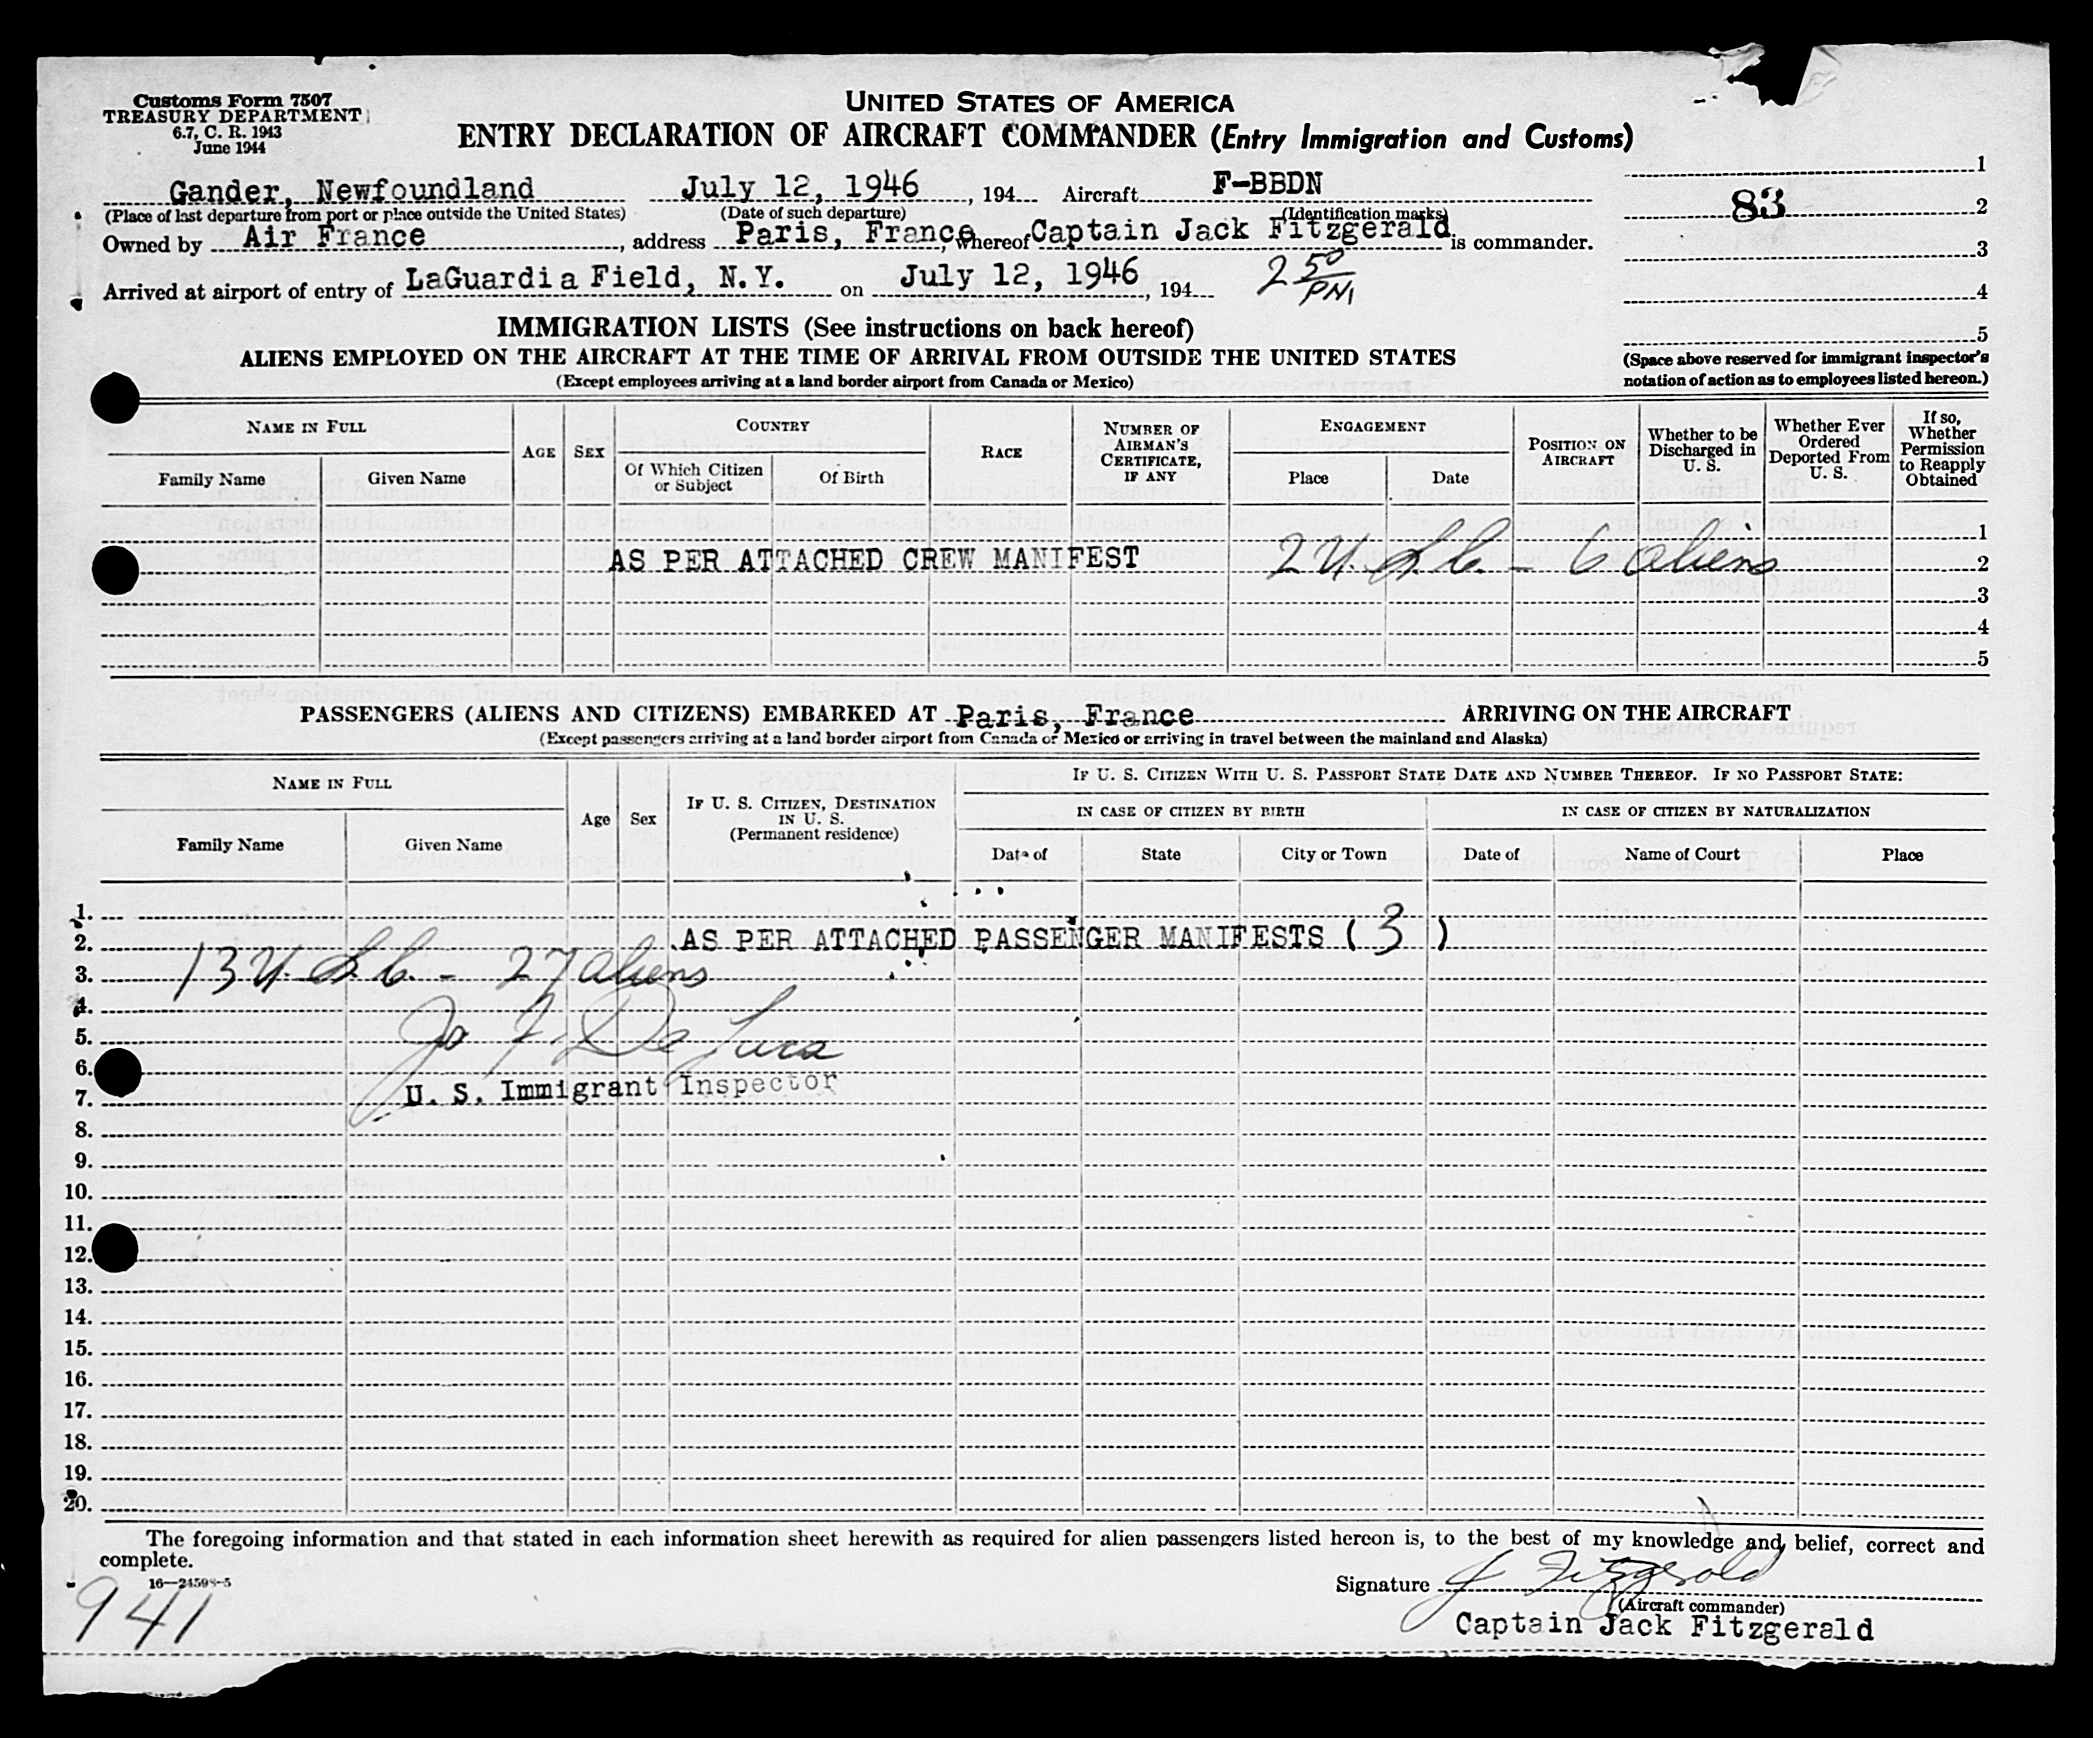 Customs Form 7507
TREASURY DEPARTMENT
6.7, C. R. 1943
June 1944
UNITED STATES OF AMERICA
ENTRY DECLARATION OF AIRCRAFT COMMANDER (Entry Immigration and Customs)
Gander, Newfoundland July 12, 1946, 194 Aircraft F-BBDN
(Place of last departure from port or place outside the United States) (Date of such departure) (Identification marks)
Owned by Air France, address Paris, France, whereof Captain Jack Fitzgerald is commander.
Arrived at airport of entry of LaGuardia Field, N.Y. on July 12, 1946, 194 2 50 PM
1
83 2
3
4
5
(Space above reserved for immigrant inspector's
notation of action as to employees listed hereon.)
IMMIGRATION LISTS (See instructions on back hereof)
ALIENS EMPLOYED ON THE AIRCRAFT AT THE TIME OF ARRIVAL FROM OUTSIDE THE UNITED STATES
(Except employees arriving at a land border airport from Canada or Mexico)
NAME IN FULL
Family Name Given Name
AGE SEX
COUNTRY
Of Which Citizen or Subject Of Birth
RACE
NUMBER OF AIRMAN'S CERTIFICATE, IF ANY
ENGAGEMENT
Place Date
POSITION ON AIRCRAFT
Whether to be Discharged in U. S.
Whether Ever Ordered Deported From U. S.
If so, Whether Permission to Reapply Obtained
1
AS PER ATTACHED CREW MANIFEST 2 U.S.C. - 6 aliens 2
3
4
5
PASSENGERS (ALIENS AND CITIZENS) EMBARKED AT Paris, France ARRIVING ON THE AIRCRAFT
(Except passengers arriving at a land border airport from Canada or Mexico or arriving in travel between the mainland and Alaska)
NAME IN FULL
Family Name Given Name
Age Sex
IF U. S. CITIZEN, DESTINATION IN U. S.
(Permanent residence)
IF U. S. CITIZEN WITH U. S. PASSPORT STATE DATE AND NUMBER THEREOF. IF NO PASSPORT STATE:
IN CASE OF CITIZEN BY BIRTH IN CASE OF CITIZEN BY NATURALIZATION
Date of State City or Town Date of Name of Court Place
1.
2. AS PER ATTACHED PASSENGER MANIFESTS ( 3 )
3. 13 U.S.C. - 27 aliens
4.
5. Jo F. De Luca
6.
7. U. S. Immigrant Inspector
8.
9.
10.
11.
12.
13.
14.
15.
16.
17.
18.
19.
20.
The foregoing information and that stated in each information sheet herewith as required for alien passengers listed hereon is, to the best of my knowledge and belief, correct and
complete.
16—24598-5
941
Signature J Fitzgerald
(Aircraft commander)
Captain Jack Fitzgerald